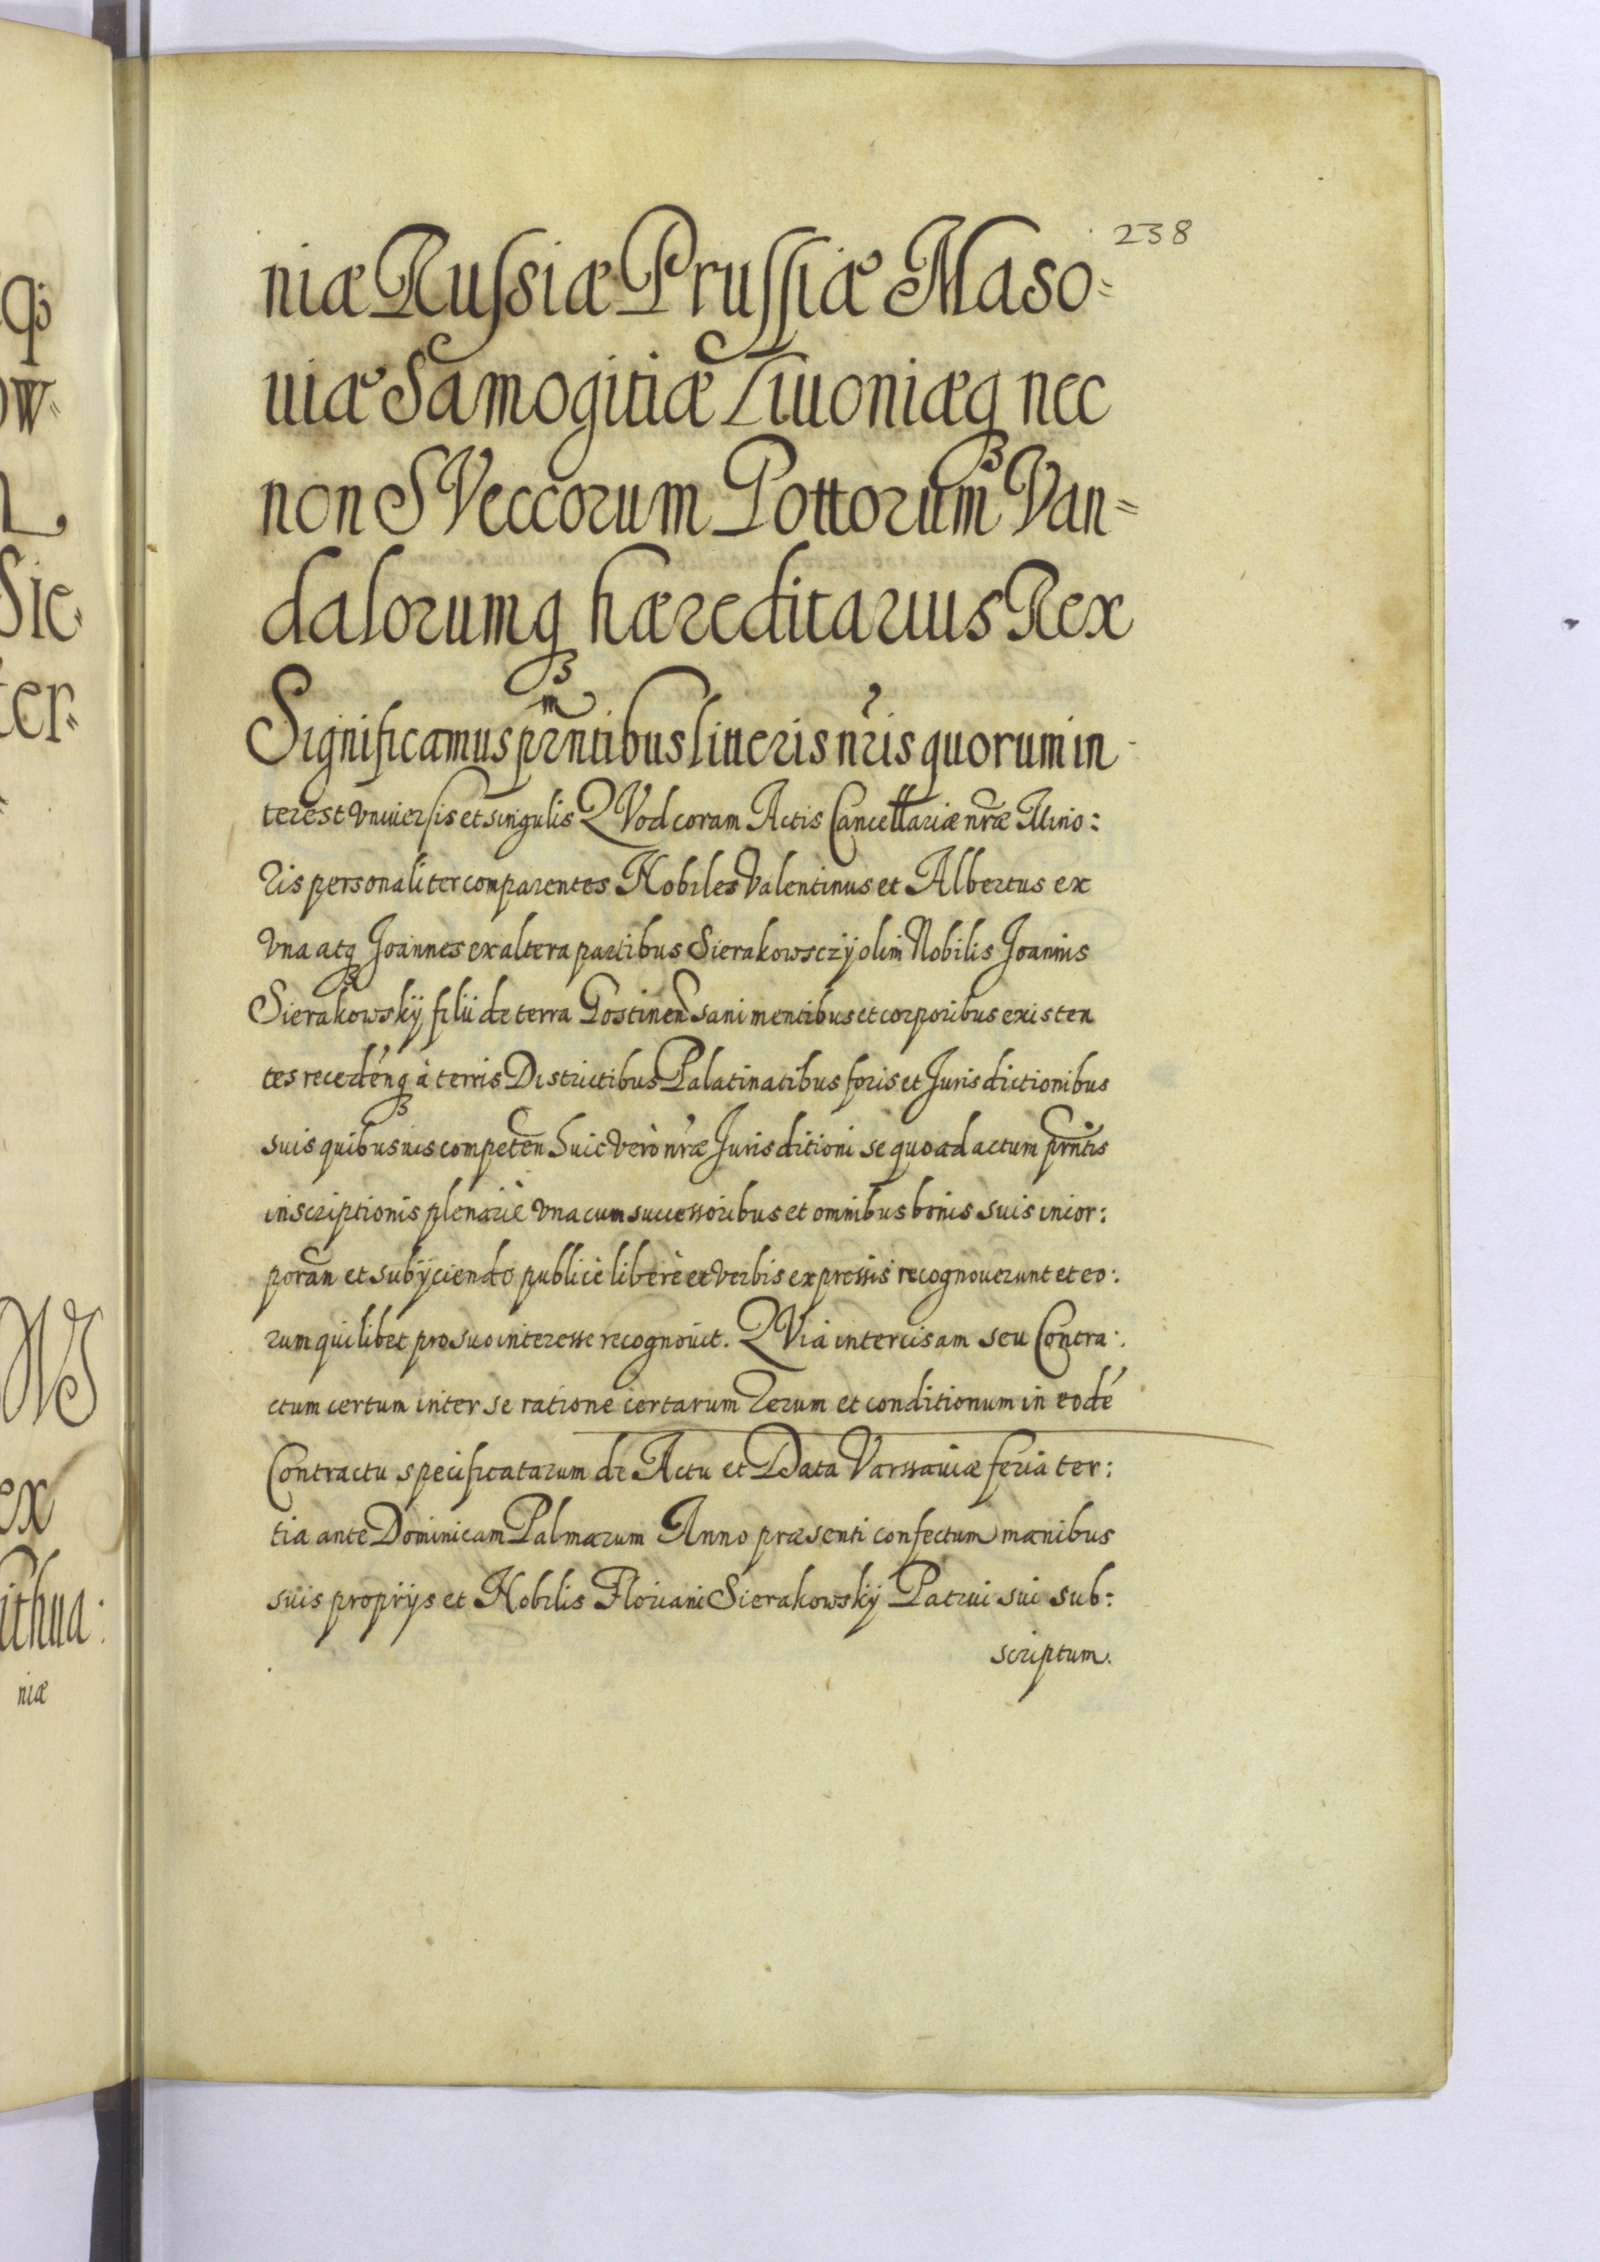 238
niæ Russiæ Prussiæ Maso=
uiæ Samogitiæ Liuoniæq3 nec
non SVeccorum Gottorum Van=
dalorumq3 hæreditarius Rex
Significamus prn̄tibus litteris nr̃is quorum in
terest vniuersis et singulis QVod coram Actis Cancellariæ nr̃æ Mino:
ris personaliter comparentes Nobiles Valentinus et Albertus ex
vna atq3 Joannes ex altera partibus Sierakowsczÿ olim Nobilis Joannis
Sierakowskÿ filii de terra Gostinen̄ sani mentibus et corporibus existen
tes recedén̄q3 à terris Districtibus Palatinatibus foris et Jurisdictionibus
suis quibusuis competen̄ huic verò nr̃æ Jurisditioni se quoad actum prn̄tis
inscriptionis plenariè vna cum successoribus et omnibus bonis suis incor:
poran̄ et subÿciendo publicè liberè et verbis expressis recognouerunt et eo:
rum quilibet pro suo interesse recognouit. QVia intercisam seu Contra:
ctum certum inter se ratione certarum rerum et conditionum in eodé
Contractu specificatarum de Actu et Data Varssauiæ feria ter:
tia ante Dominicam Palmarum Anno præsenti confectum manibus
suis proprÿs et Nobilis Floriani Sierakowskÿ Patrui sui sub:
scriptum.
q3
ow=
Sie=
ter=
WS
ex
ithua:
niæ